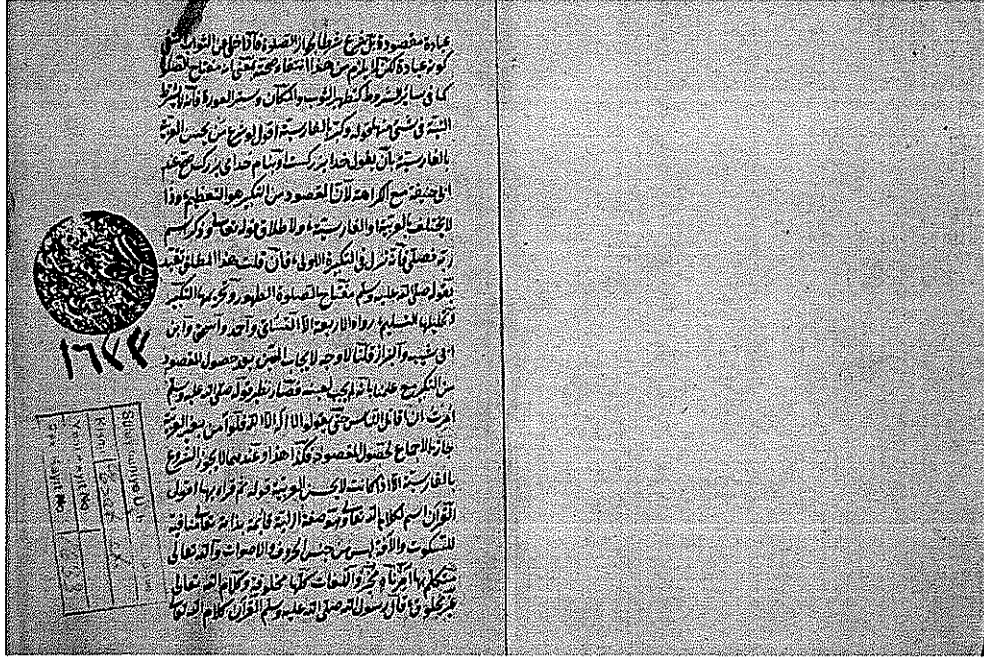 عبادة مقصودة بل شرع شرطا لجواز الصلوة فاذا خلى عن الثواب انتفى
كونه عبادة لكن لا يلزم من هذا انتفاء صحته لمعنى انه مفتاح الصلوة
كما فى سائر الشروط كتطهير الثوب والمكان وستر العورة فانه لا يشترط
النية فى شئ منها قوله وكبر بالفارسية اقول لو شرع من يحسن العربية
بالفارسية بان يقول خدا بزركست او بنام خداى بزرك صح عند
ابى حنيفة مع الكراهة لان المقصود من التكبير هو التعظيم وذا
لا يختلف بالعربية والفارسية ولا طلاق قوله تعالى وذكر اسم
ربه فصلى فانه نزل فى التكبيرة الاولى فان قلت هذا المطلق تقيد
بقوله صلى الله عليه وسلم مفتاح الصلوة الطهور وتحريمها التكبير
وتحليلها التسليم رواه الاربعة الا النسائى واحمد واسحق وابن
ابى شيبه والبزار قلنا لا وجه لايجاب العين بعد حصول المقصود
من التكبير مع علمنا بانه لم يجب لعينه فصار نظير قوله صلى الله عليه وسلم
امرت ان اقاتل الناس حتى يقولوا لا اله الا الله فلو آمن بغير العربية
جاز بالاجماع لحصول المقصود فكذا هذا وعندهما لا يجوز الشروع
بالفارسية الا اذا كانت لا يحسن العربية قوله ثم قراء بها اقول
القرآن اسم لكلام الله تعالى وهو صفة ازلية قائمة بذاته تعالى منافية
للسكوت والآفة ليس من جنس الحروف والاصوات والله تعالى
متكلم بها آمرنا ومخبر واللغات كلها مخلوقة وكلام الله تعالى
غير مخلوق قال رسول الله صلى الله عليه وسلم القرآن كلام الله تعا
١٦٧٣
Süleymaniye U. K
Kısmı
Yeni Kayıt No.
Eski Kayıt No.